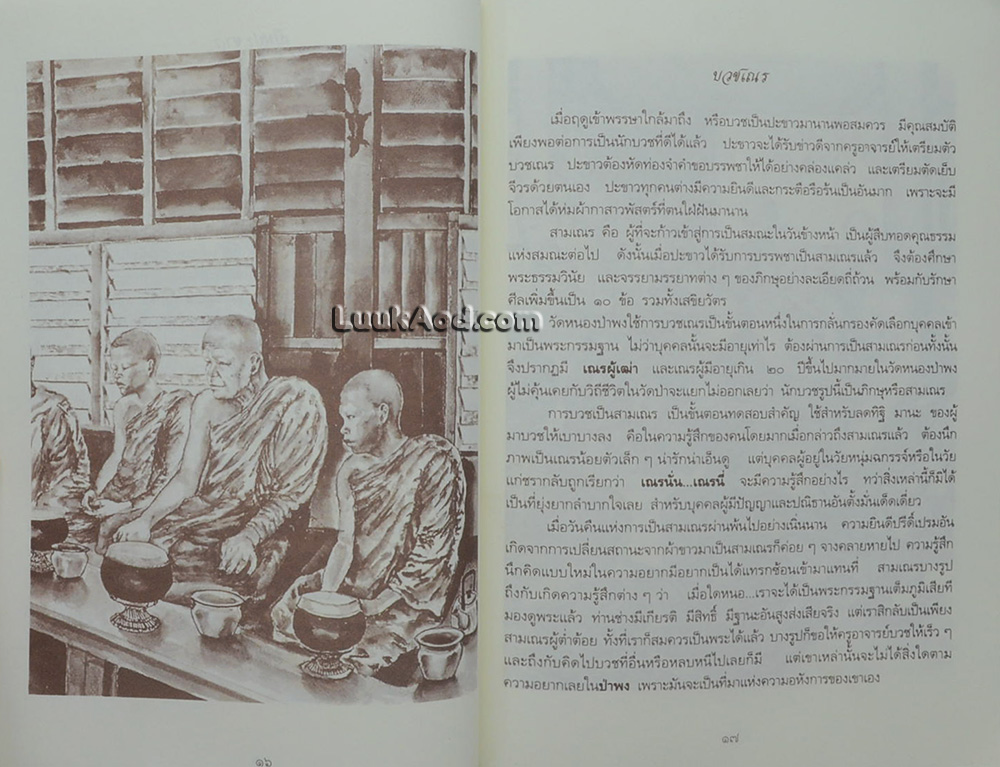 LuukAod.com
๑๖
บวชเณร
เมื่อฤดูเข้าพรรษาใกล้มาถึง หรือบวชเป็นปะขาวมานานพอสมควร มีคุณสมบัติ
เพียงพอต่อการเป็นนักบวชที่ดีได้แล้ว ปะขาวจะได้รับข่าวดีจากครูอาจารย์ให้เตรียมตัว
บวชเณร ปะขาวต้องหัดท่องจำคำขอบรรพชาให้ได้อย่างคล่องแคล่ว และเตรียมตัดเย็บ
จีวรด้วยตนเอง ปะขาวทุกคนต่างมีความยินดีและกระตือรือร้นเป็นอันมาก เพราะจะมี
โอกาสได้ห่มผ้ากาสาวพัสตร์ที่ตนใฝ่ฝันมานาน
สามเณร คือ ผู้ที่จะก้าวเข้าสู่การเป็นสมณะในวันข้างหน้า เป็นผู้สืบทอดคุณธรรม
แห่งสมณะต่อไป ดังนั้นเมื่อปะขาวได้รับการบรรพชาเป็นสามเณรแล้ว จึงต้องศึกษา
พระธรรมวินัย และจรรยามรรยาทต่าง ๆ ของภิกษุอย่างละเอียดถี่ถ้วน พร้อมกับรักษา
ศีลเพิ่มขึ้นเป็น ๑๐ ข้อ รวมทั้งเสขิยวัตร
วัดหนองป่าพงใช้การบวชเณรเป็นขั้นตอนหนึ่งในการกลั่นกรองคัดเลือกบุคคลเข้า
มาเป็นพระกรรมฐาน ไม่ว่าบุคคลนั้นจะมีอายุเท่าไร ต้องผ่านการเป็นสามเณรก่อนทั้งนั้น
จึงปรากฏมี เณรผู้เฒ่า และเณรผู้มีอายุเกิน ๒๐ ปีขึ้นไปมากมายในวัดหนองป่าพง
ผู้ไม่คุ้นเคยกับวิถีชีวิตในวัดป่าจะแยกไม่ออกเลยว่า นักบวชรูปนี้เป็นภิกษุหรือสามเณร
การบวชเป็นสามเณร เป็นขั้นตอนทดสอบสำคัญ ใช้สำหรับลดทิฐิ มานะ ของผู้
มาบวชให้เบาบางลง คือในความรู้สึกของคนโดยมากเมื่อกล่าวถึงสามเณรแล้ว ต้องนึก
ภาพเป็นเณรน้อยตัวเล็ก ๆ น่ารักน่าเอ็นดู แต่บุคคลผู้อยู่ในวัยหนุ่มฉกรรจ์หรือในวัย
แก่ชรากลับถูกเรียกว่า เณรนั่น...เณรนี่ จะมีความรู้สึกอย่างไร ทว่าสิ่งเหล่านี้ก็มิได้
เป็นที่ยุ่งยากลำบากใจเลย สำหรับบุคคลผู้มีปัญญาและปณิธานอันตั้งมั่นเด็ดเดี่ยว
เมื่อวันคืนแห่งการเป็นสามเณรผ่านพ้นไปอย่างเนิ่นนาน ความยินดีปรีดิ์เปรมอัน
เกิดจากการเปลี่ยนสถานะจากผ้าขาวมาเป็นสามเณรก็ค่อย ๆ จางคลายหายไป ความรู้สึก
นึกคิดแบบใหม่ในความอยากมีอยากเป็นได้แทรกซ้อนเข้ามาแทนที่ สามเณรบางรูป
ถึงกับเกิดความรู้สึกต่าง ๆ ว่า เมื่อใดหนอ...เราจะได้เป็นพระกรรมฐานเต็มภูมิเสียที
มองดูพระแล้ว ท่านช่างมีเกียรติ มีสิทธิ์ มีฐานะอันสูงส่งเสียจริง แต่เราสิกลับเป็นเพียง
สามเณรผู้ต่ำต้อย ทั้งที่เราก็สมควรเป็นพระได้แล้ว บางรูปก็ขอให้ครูอาจารย์บวชให้เร็ว ๆ
และถึงกับคิดไปบวชที่อื่นหรือหลบหนีไปเลยก็มี แต่เขาเหล่านั้นจะไม่ได้สิ่งใดตาม
ความอยากเลยในป่าพง เพราะมันจะเป็นที่มาแห่งความอหังการของเขาเอง
๑๗